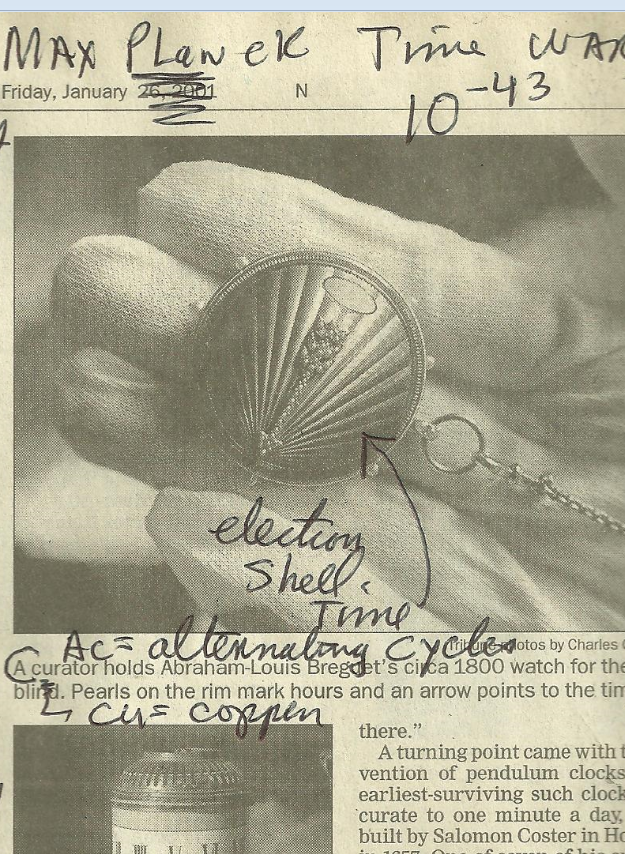 MAX PLanCK Time WAR
Friday, January 26, 2001 N
10-43
election
Shell.
Time
AC= alternating Cycles
Tribune photos by Charles
A curator holds Abraham-Louis Breguet's circa 1800 watch for the
blind. Pearls on the rim mark hours and an arrow points to the tim
Cu= coppen
there."
A turning point came with t
vention of pendulum clocks
earliest-surviving such clock
curate to one minute a day,
built by Salomon Coster in Ho
in 1657. One of